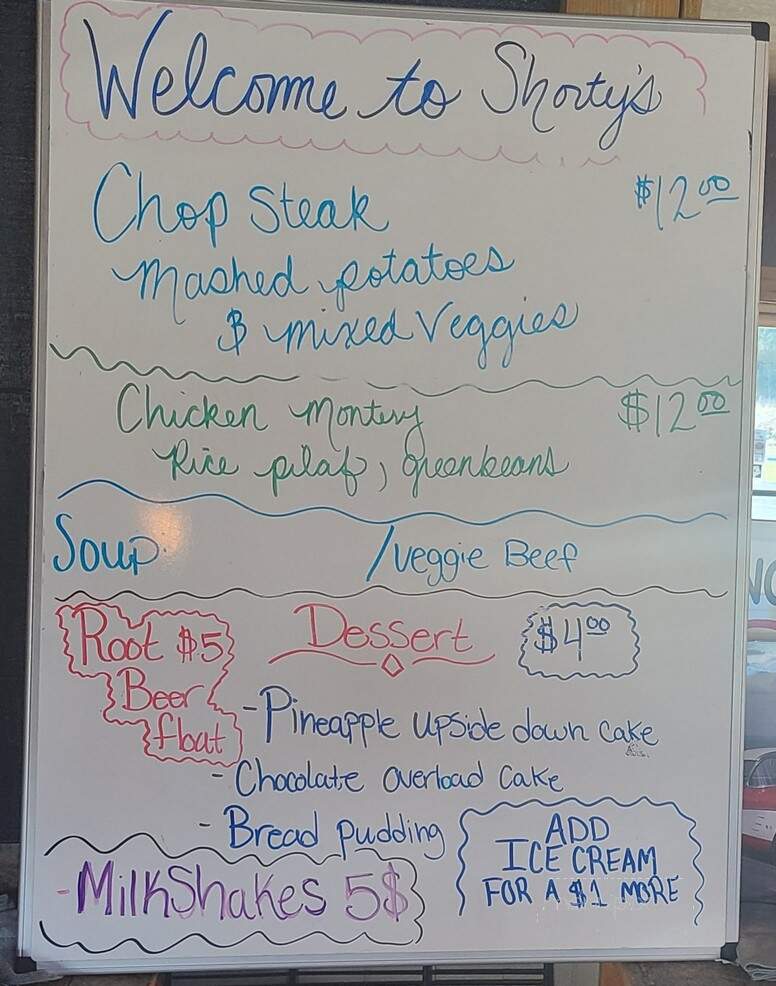 Welcome to Shorty's
Chop Steak $12.00
Mashed potatoes
& mixed Veggies
Chicken Montery $12.00
Rice pilaf, greenbeans
Soup /veggie Beef
Root $5
Beer
float
Dessert $4.00
- Pineapple upside down cake
- Chocolate overload cake
- Bread pudding
ADD
ICE CREAM
FOR A $1 MORE
- MilkShakes 5$